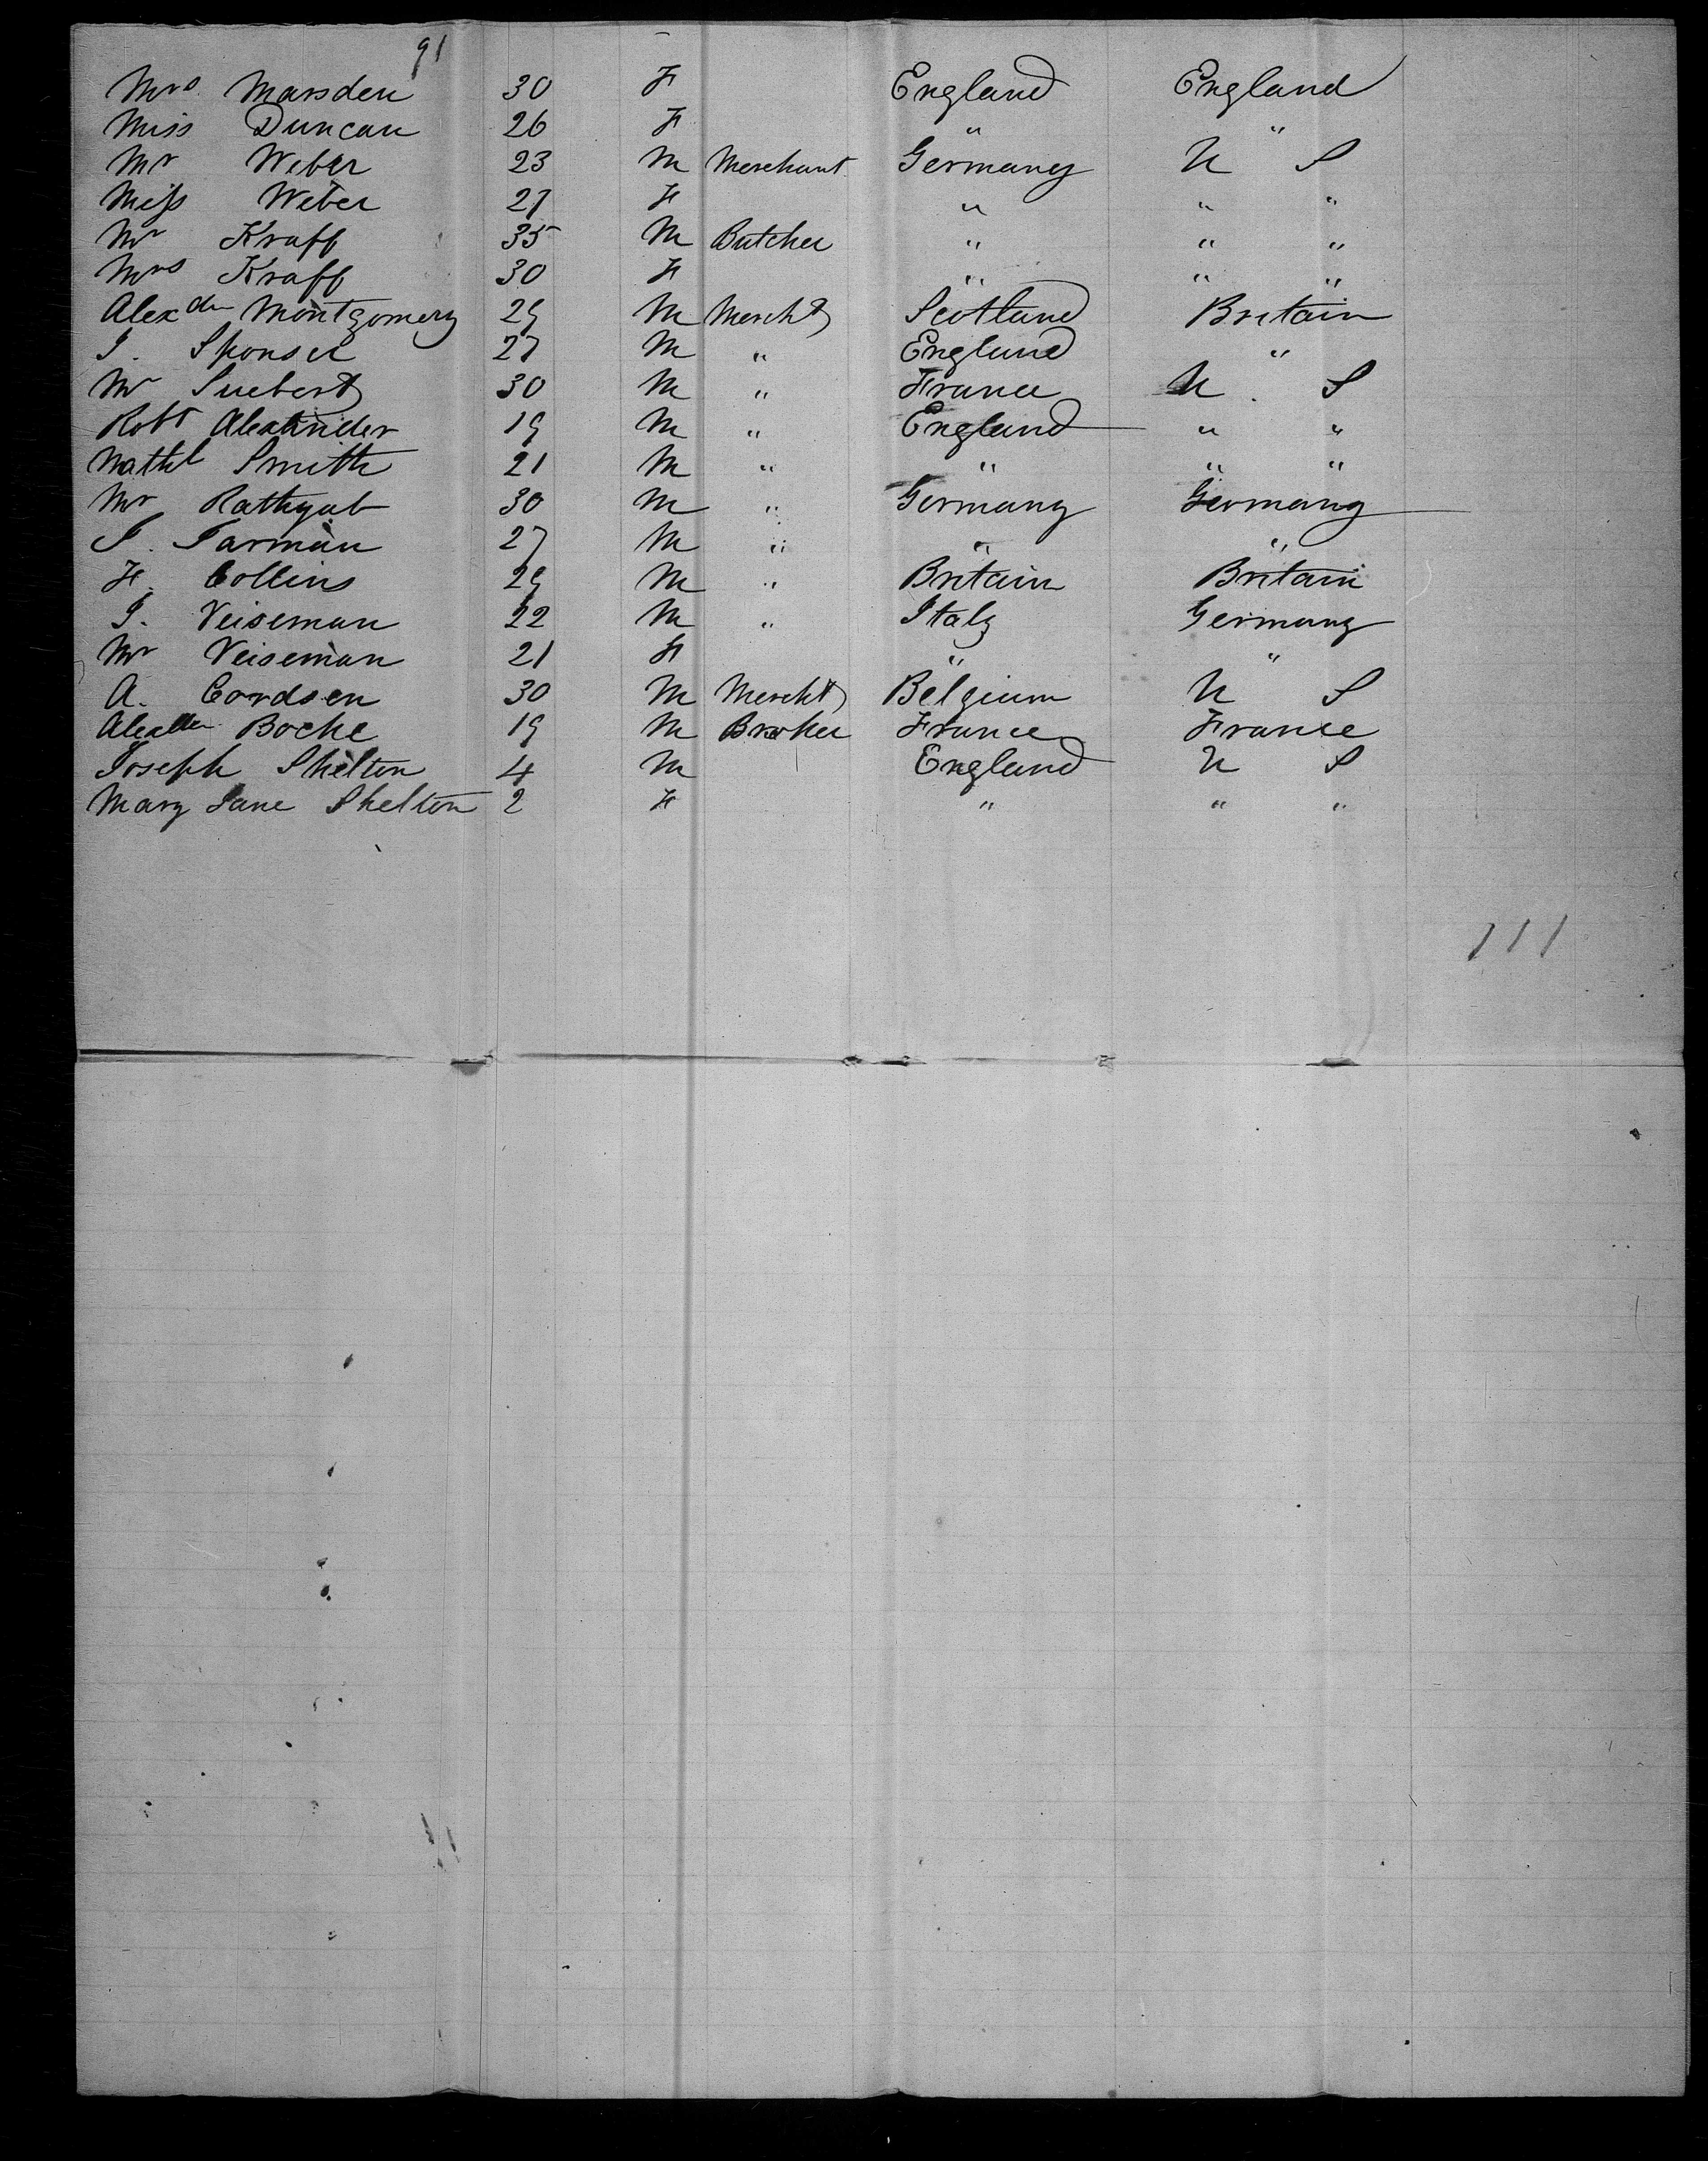 91
Mrs Marsden 30 F England England
Miss Duncan 26 F " "
Mr Weber 23 M Merchant Germany U S
Miss Weber 27 F " " "
Mr Kraff 35 M Butcher " " "
Mrs Kraff 30 F " " "
Alexdr Montgomery 29 M Mercht Scotland Britain
I. Sponsel 27 M " England "
Mr Suebert 30 M " France U. S
Robt Alexander 19 M " England " "
Nathl Smith 21 M " " " "
Mr 30 M " Germany Germany
27 M " " "
H. Collins 29 M " Britain Britain
I. Veiseman 22 M " Italy Germany
Mr Veiseman 21 F " "
A. Cordsen 30 M Mercht Belgium U S
Alexdr Bocke 19 M Broker France France
Joseph Shelton 4 M England U S
Mary Jane Shelton 2 F " " "
111